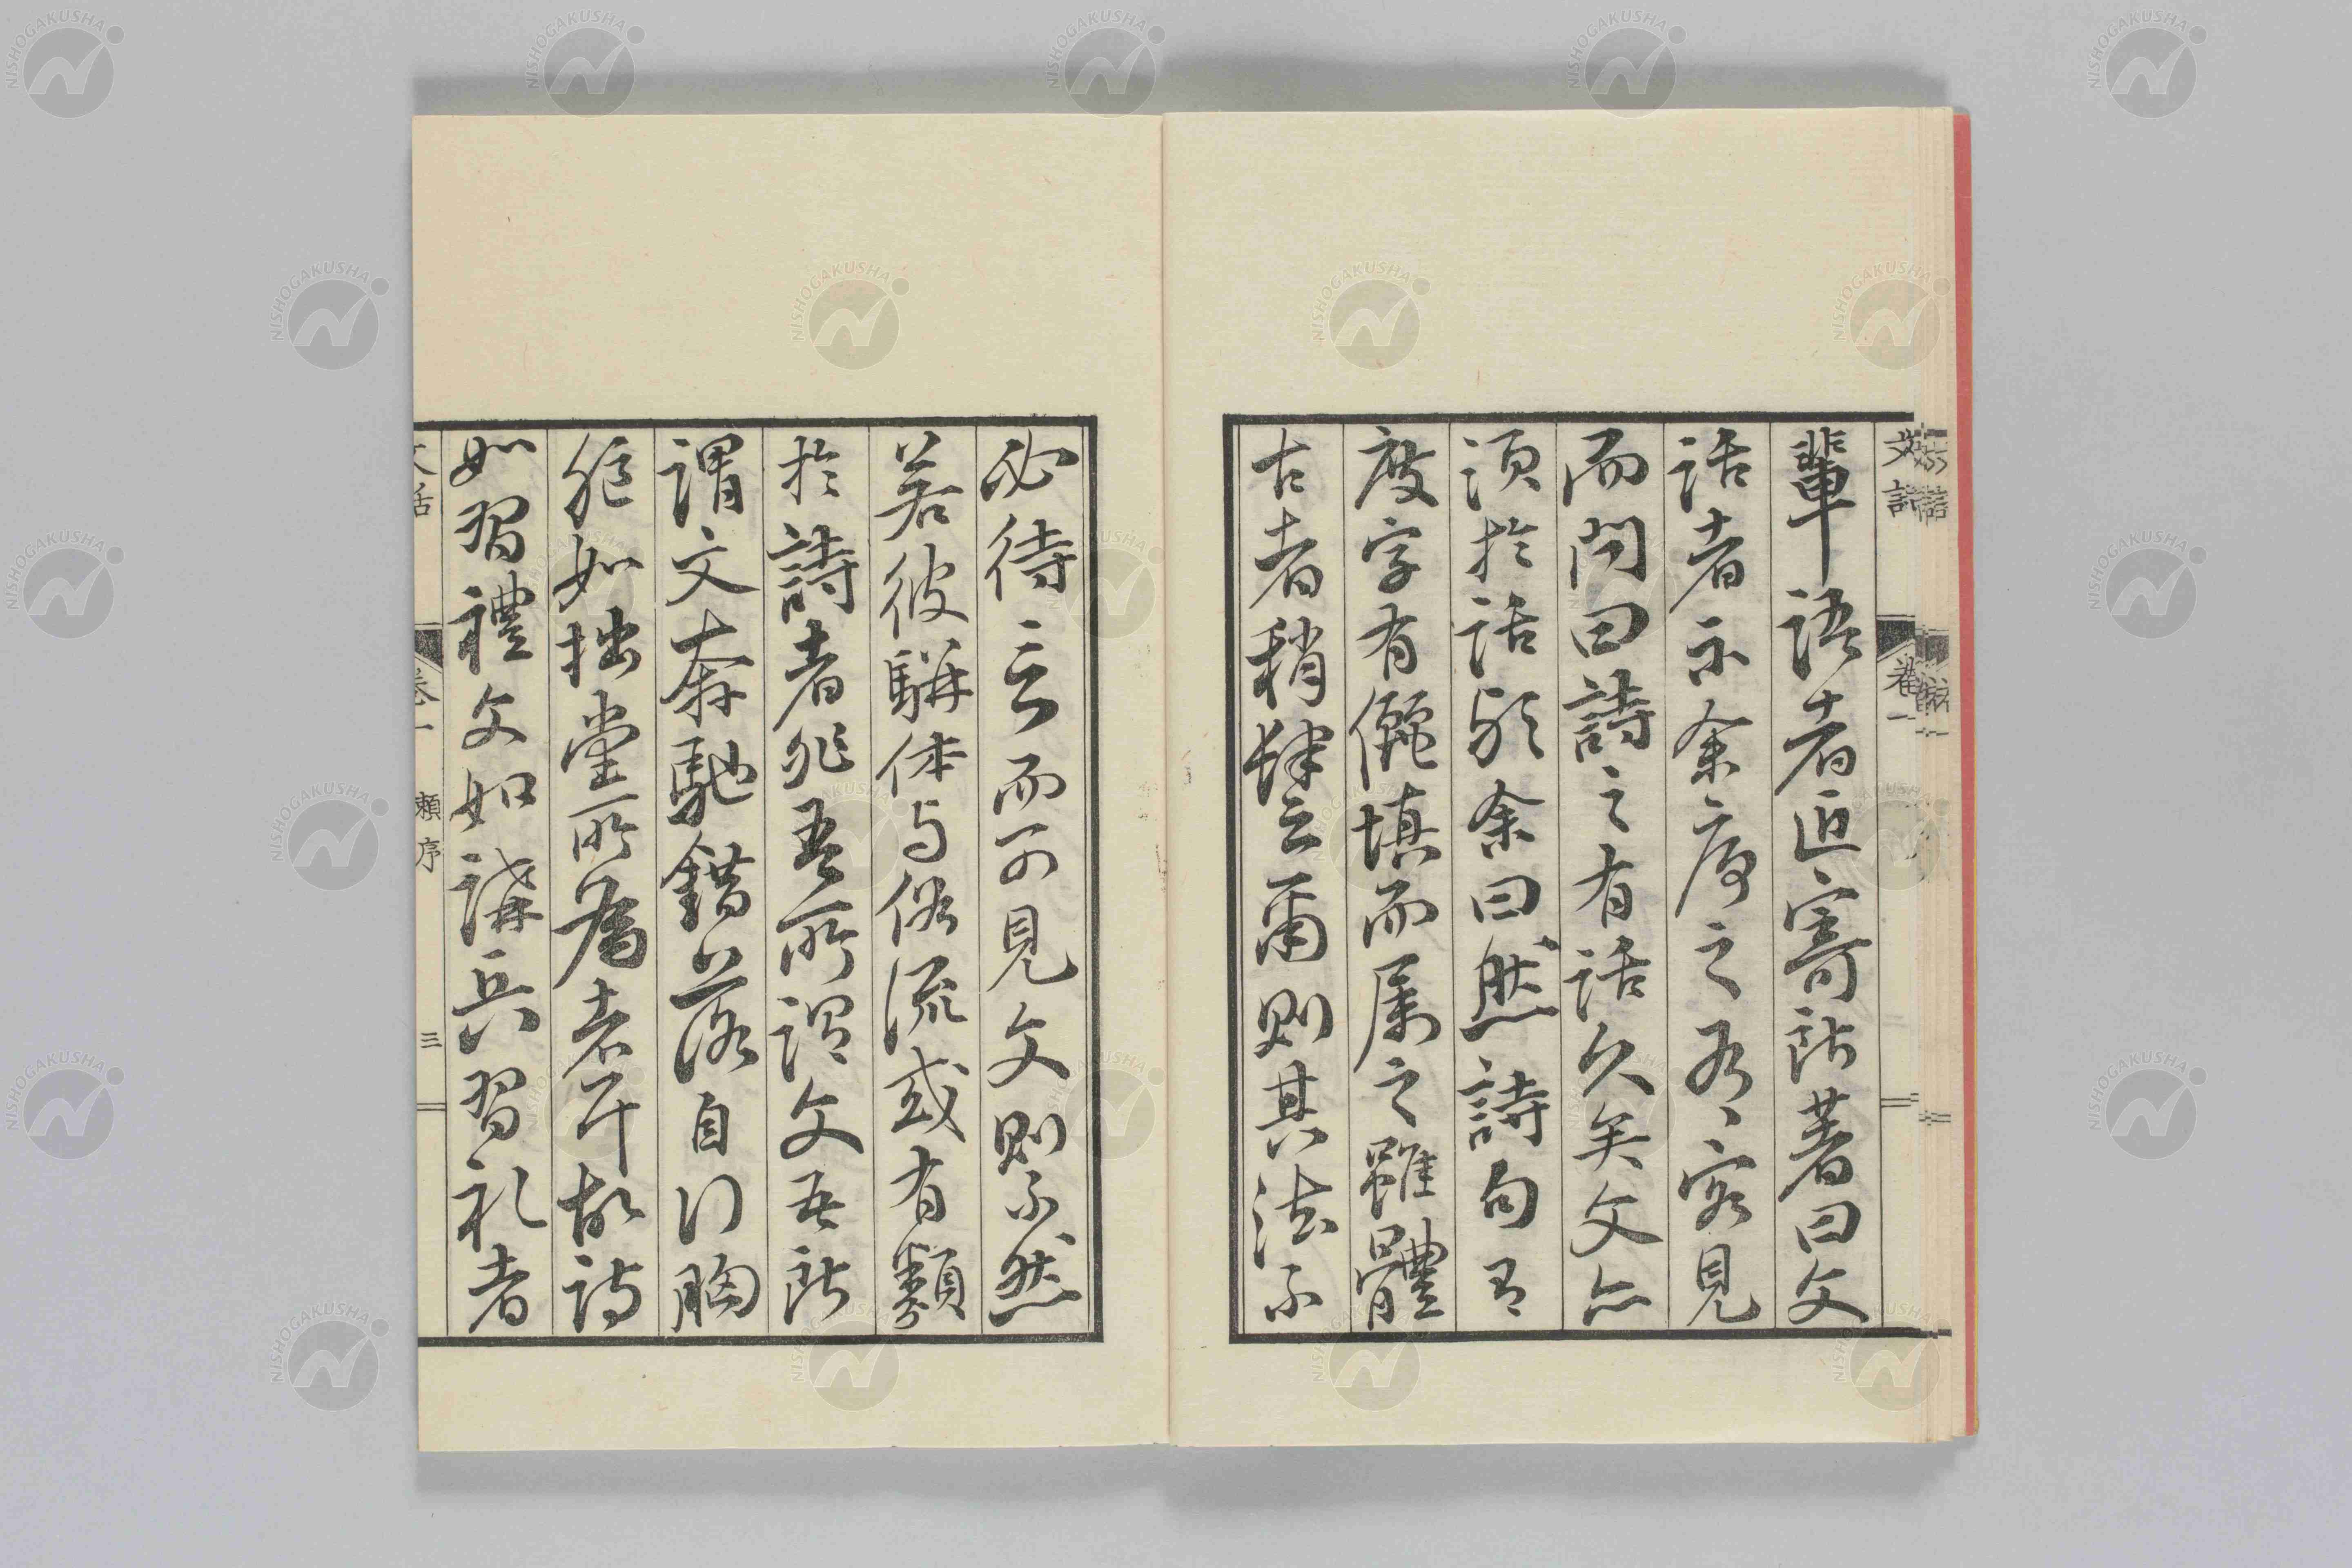 文話 卷一
輩語者近寄所著曰文
話者示余序之有客見
而問曰詩之有話久矣文亦
須於話歟余曰然詩句有
度字有儷填而属之雖體
古者稍肆云爾則其法不
必待言而可見文則不然
若彼駢体与俗流或有類
於詩者非吾所謂文吾所
謂文奔馳錯落自行胸
臆如拙堂所為者耳故詩
如習禮文如講兵習礼者
文話 卷一 賴序 三
NISHOGAKUSHA